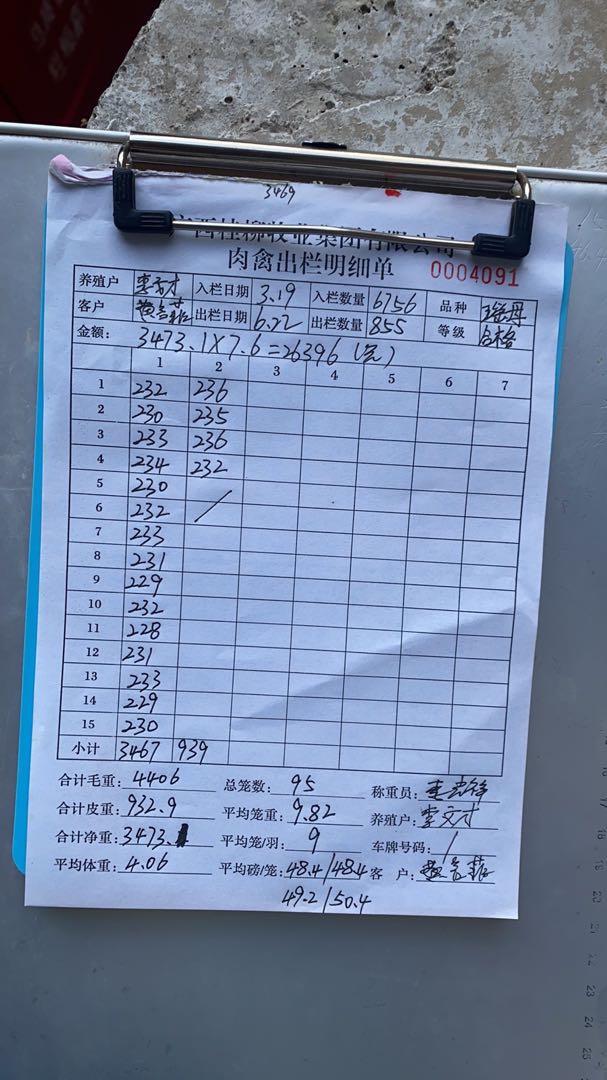 3469
广西桂柳牧业集团有限公司
肉禽出栏明细单 0004091
养殖户 李文才 入栏日期 3.19 入栏数量 6756 品种 瑶丹
客户 出栏日期 6.22 出栏数量 855 等级 合格
金额: 3473.1×7.6=26396(元)
1 2 3 4 5 6 7
1 232 236
2 230 235
3 233 236
4 234 232
5 230
6 232 /
7 233
8 231
9 229
10 232
11 228
12 231
13 233
14 229
15 230
小计 3467 939
合计毛重: 4406 总笼数: 95 称重员:
合计皮重: 932.9 平均笼重: 9.82 养殖户: 李文才
合计净重: 3473.1 平均笼/羽: 9 车牌号码: /
平均体重: 4.06 平均磅/笼: 48.4/48.4 客 户:
49.2/50.4